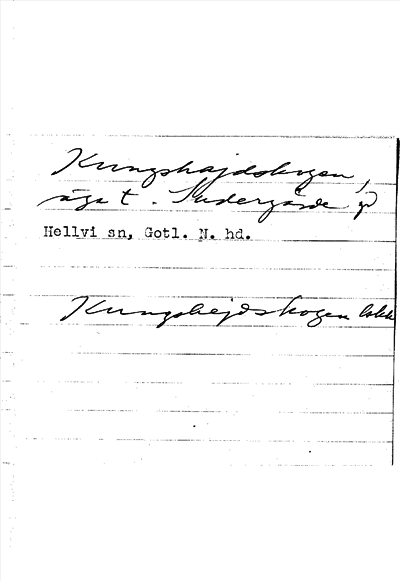 Kungshajdskogen,
äga t. Södergårde gd
Hellvi sn, Gotl. N. hd.
Kungshejdskogen